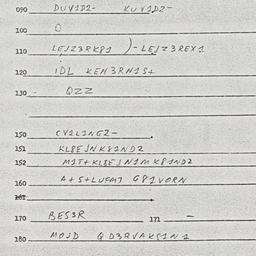 090 DUV1D2- KUV1D2-
100 O
110 LEJZ3RKP1 )-LEJZ3REX1
120 IDL KEN3RN1S+
130 QZZ
150 CV1L1NG2-
151 KL8EJNK81ND2
152 M1T+KL8EJN1MK81ND2
160 A+S+LUFM7 G81VORN
161
170 BES3R 171 -
180 MOJD QD3RVAKS1N1